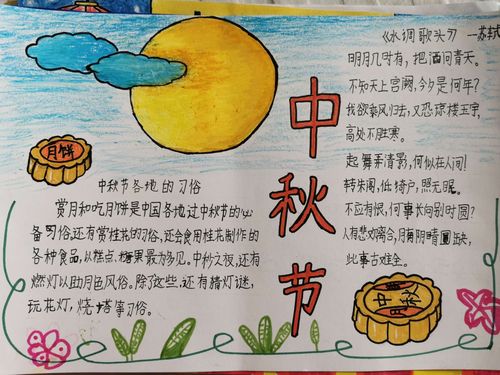 中秋节
月饼
中秋节各地的习俗
赏月和吃月饼是中国各地过中秋节的必
备习俗,还有赏桂花的习俗,还会食用桂花制作的
各种食品,以糕点、糖果最为多见。中秋之夜,还有
燃灯以助月色风俗。除了这些,还有猜灯谜,
玩花灯,烧塔等习俗。
《水调歌头》 —苏轼
明月几时有,把酒问青天。
不知天上宫阙,今夕是何年?
我欲乘风归去,又恐琼楼玉宇,
高处不胜寒。
起舞弄清影,何似在人间!
转朱阁,低绮户,照无眠。
不应有恨,何事长向别时圆?
人有悲欢离合,月有阴晴圆缺,
此事古难全。
中秋